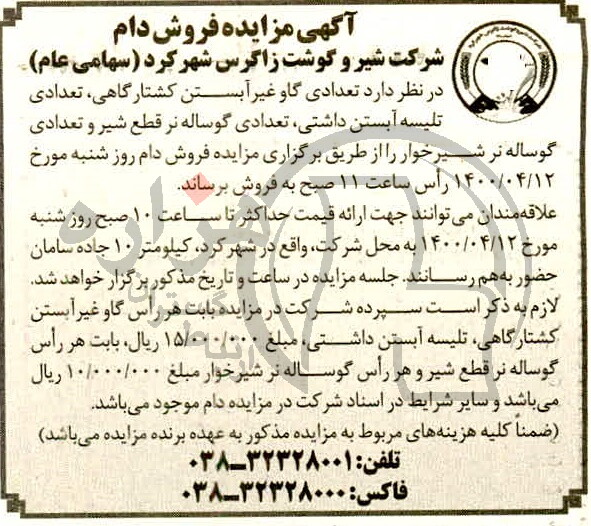 آگهی مزایده فروش دام
شرکت شیر و گوشت زاگرس شهرکرد (سهامی عام)
در نظر دارد تعدادی گاو غیرآبستن کشتارگاهی، تعدادی
تلیسه آبستن داشتی، تعدادی گوساله نر قطع شیر و تعدادی
گوساله نر شیرخوار را از طریق برگزاری مزایده فروش دام روز شنبه مورخ
۱۴۰۰/۰۴/۱۲ رأس ساعت ۱۱ صبح به فروش برساند.
علاقه‌مندان می‌توانند جهت ارائه قیمت حداکثر تا ساعت ۱۰ صبح روز شنبه
مورخ ۱۴۰۰/۰۴/۱۲ به محل شرکت، واقع در شهرکرد، کیلومتر ۱۰ جاده سامان
حضور به‌هم رسانند. جلسه مزایده در ساعت و تاریخ مذکور برگزار خواهد شد.
لازم به ذکر است سپرده شرکت در مزایده بابت هر رأس گاو غیرآبستن
کشتارگاهی، تلیسه آبستن داشتی، مبلغ ۱۵/۰۰۰/۰۰۰ ریال، بابت هر رأس
گوساله نر قطع شیر و هر رأس گوساله نر شیرخوار مبلغ ۱۰/۰۰۰/۰۰۰ ریال
می‌باشد و سایر شرایط در اسناد شرکت در مزایده دام موجود می‌باشد.
(ضمناً کلیه هزینه‌های مربوط به مزایده مذکور به عهده برنده مزایده می‌باشد)
تلفن: ۳۲۳۲۸۰۰۱-۰۳۸
فاکس: ۳۲۳۲۸۰۰۰-۰۳۸